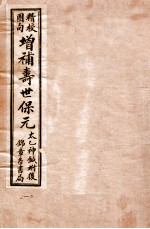 精校
圖向
增補壽世保元
太乙神鍼附後
錦章書局
一